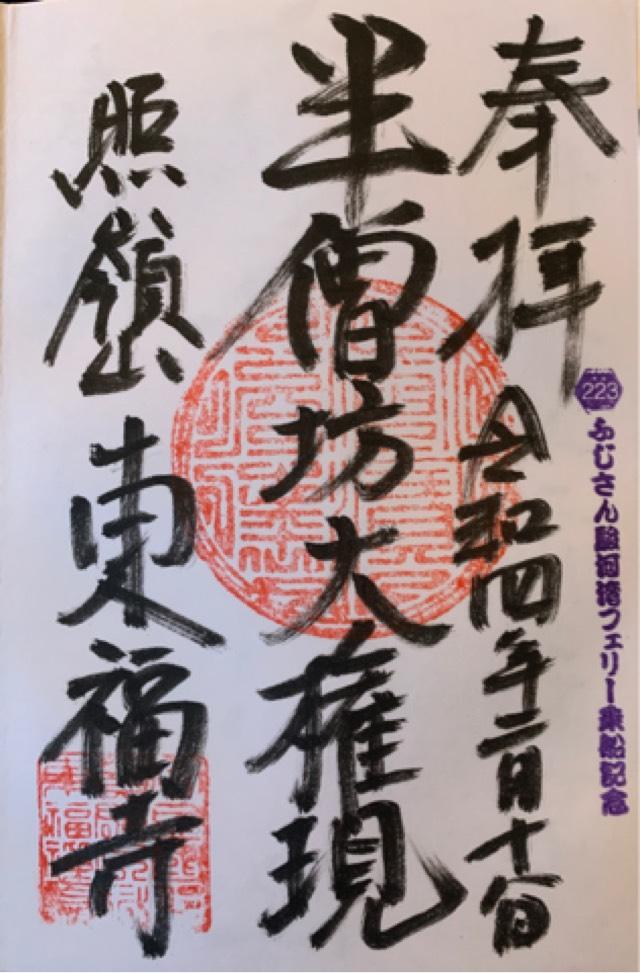 奉拝
令和四年二月十八日
223
ふじさん駿河湾フェリー乗船記念
半僧坊大権現
照嶺東福寺